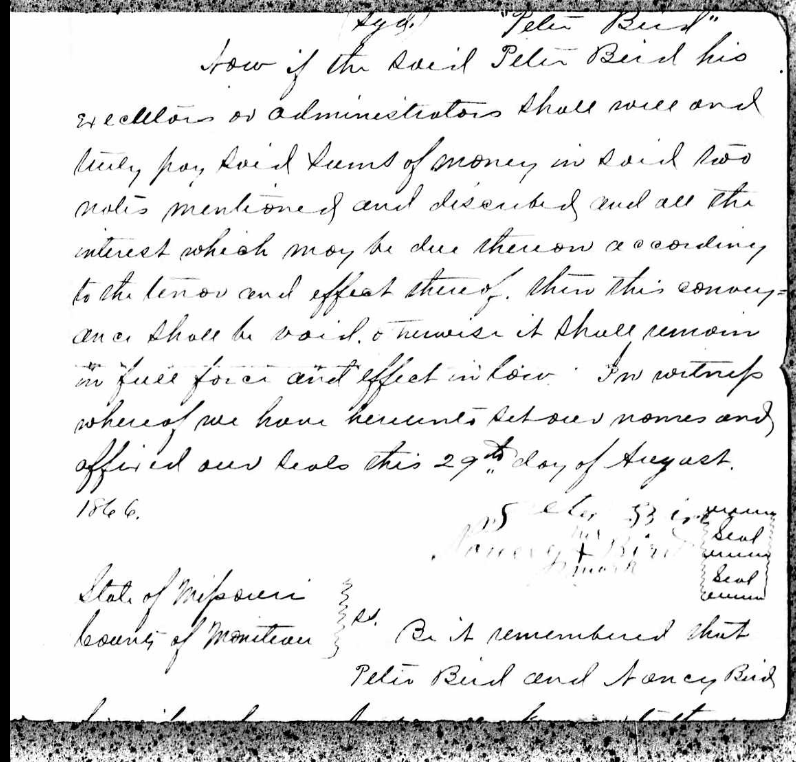 (Sgd.) "Peter Bird"
Now if the said Peter Bird his
executors or administrators shall well and
truly pay said sums of money in said two
notes mentioned and discribed, and all the
interest which may be due thereon according
to the tenor and effect thereof. then this convey=
ance shall be void. otherwise it shall remain
in full force and effect in law. In witness
whereof we have hereunto set our names and
affixed our seals this 29th day of August.
1866.
Peter Bird Seal
her
Nancy + Bird Seal
mark
State of Missouri
County of Moniteau } ss. Be it remembered that
Peter Bird and Nancy Bird